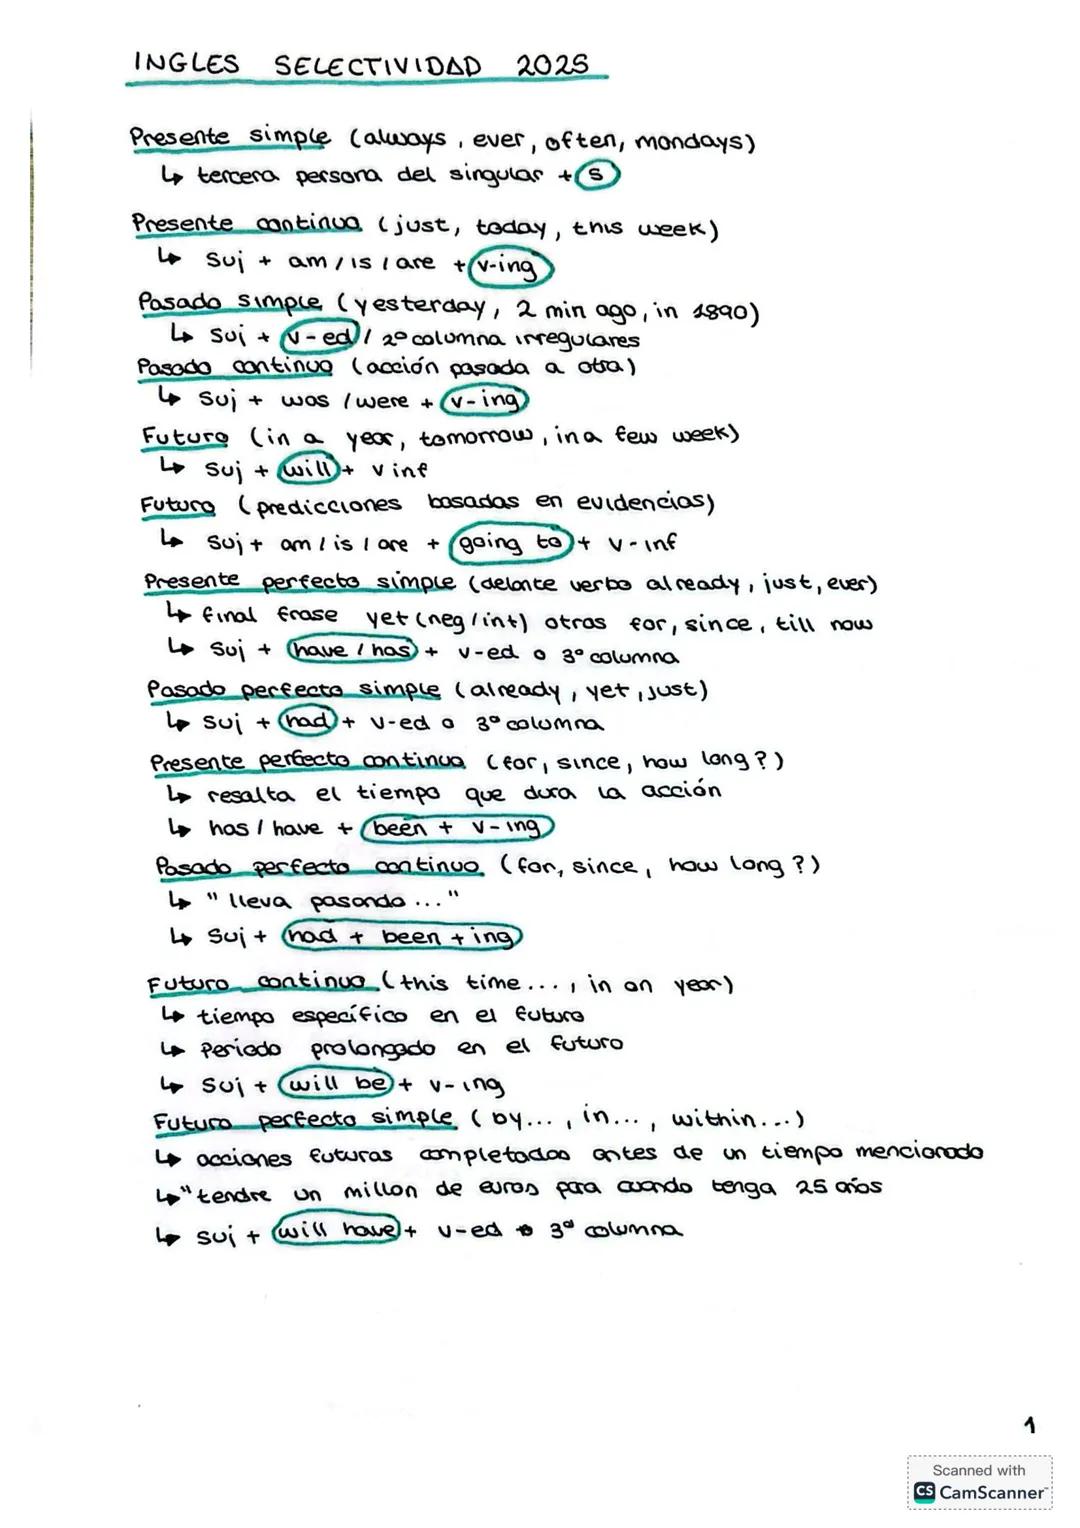 INGLES SELECTIVIDAD 2025
Presente simple (always, ever, often, mondays)
↳ tercera persona del singular + s
Presente continuo (just, today, this week)
↳ suj + am / is / are + v-ing
Pasado simple (yesterday, 2 min ago, in 1890)
↳ suj + v-ed / 2º columna irregulares
Pasado continuo (acción pasada a otra)
↳ suj + was / were + v-ing
Futuro (in a year, tomorrow, in a few week)
↳ suj + will + v inf
Futuro (predicciones basadas en evidencias)
↳ suj + am / is / are + going to + v-inf
Presente perfecto simple (delante verbo already, just, ever)
↳ final frase yet (neg/int) otras for, since, till now
↳ suj + have / has + v-ed o 3º columna
Pasado perfecto simple (already, yet, just)
↳ suj + had + v-ed o 3º columna
Presente perfecto continuo (for, since, how long?)
↳ resalta el tiempo que dura la acción
↳ has / have + been + v-ing
Pasado perfecto continuo (for, since, how long?)
↳ "lleva pasando..."
↳ suj + had + been + ing
Futuro continuo (this time..., in an year)
↳ tiempo específico en el futuro
↳ Periodo prolongado en el futuro
↳ suj + will be + v-ing
Futuro perfecto simple (by..., in..., within...)
↳ acciones futuras completadas antes de un tiempo mencionado
↳ "tendre un millon de euros para cuando tenga 25 años
↳ suj + will have + v-ed o 3ª columna
1
Scanned with
CS CamScanner